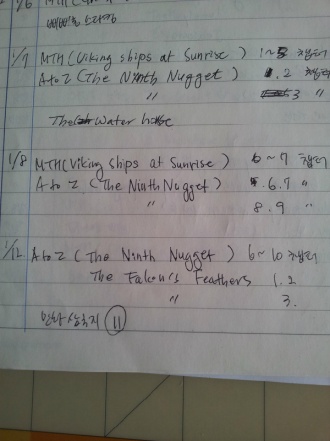 1/6 MTH
빼빼로 스타킹
1/7 MTH (Viking ships at Sunrise) 1~5 챕터
A to Z (The Ninth Nugget) 1.2 챕터
" 3 "
The Water horse
1/8 MTH (Viking ships at Sunrise) 6~7 챕터
A to Z (The Ninth Nugget) 5.6.7 "
" 8.9 "
1/12 A to Z (The Ninth Nugget) 6~10 챕터
The Falcon's Feathers 1.2
" 3.
만화 삼국지 11